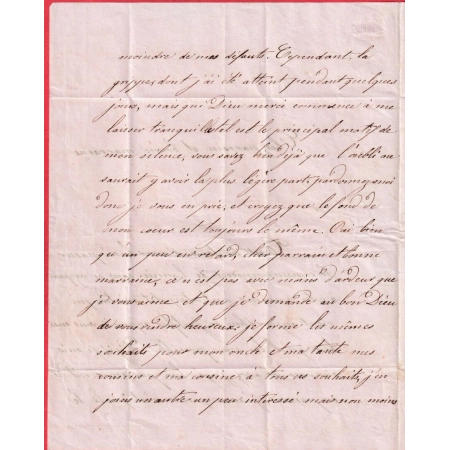 moindre de mes défauts. Cependant, la
grippe, dont j'ai été atteint pendant quelques
jours, mais qui Dieu merci commence à me
laisser tranquille est le principal motif de
mon silence, vous savez bien déjà que l'oubli ne
saurait y avoir la plus légère part, pardonnez moi
donc je vous en prie, et croyez que le fond de
mon coeur est toujours le même. Oui bien
qu'un peu en retard, cher parrain et bonne
marraine, ce n'est pas avec moins d'ardeur que
je vous aime et que je demande au bon Dieu
de vous rendre heureux. je forme les mêmes
souhaits pour mon oncle et ma tante mes
cousins et ma cousine. à tous ces souhaits, j'en
joins un autre un peu intéressé mais non moins